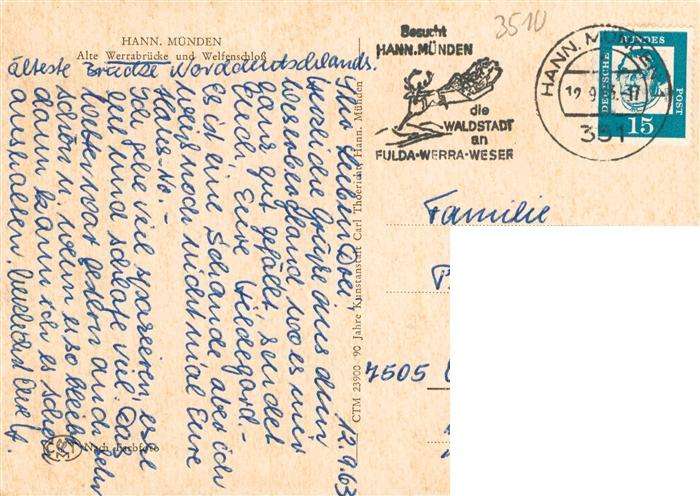 HANN. MÜNDEN
Alte Werrabrücke und Welfenschloß
älteste Brücke Norddeutschlands.
12.9.63
Ihr Lieben Drei,
herzliche Grüße aus dem
Weserbergland wo es mir
gar gut gefällt, sendet
Euch Eure Hildegard.
Es ist eine Schande aber ich
weiß noch nicht mal Eure
Haus-No.-
Ich gehe viel spazieren, esse
gut und schlafe viel. Das
Wetter war gestern auch sehr
schön u. wenn es so bleibt
dann kann ich es schon
aushalten. Herzlichst Eure H.
Nach Farbfoto
CTM 23900 90 Jahre Kunstanstalt Carl Thoericht Hann. Münden
3510
Besucht
HANN. MÜNDEN
die
WALDSTADT
an
FULDA-WERRA-WESER
HANN. MÜNDEN
12.9.
-17
351
DEUTSCHE BUNDESPOST
15
Familie
7505